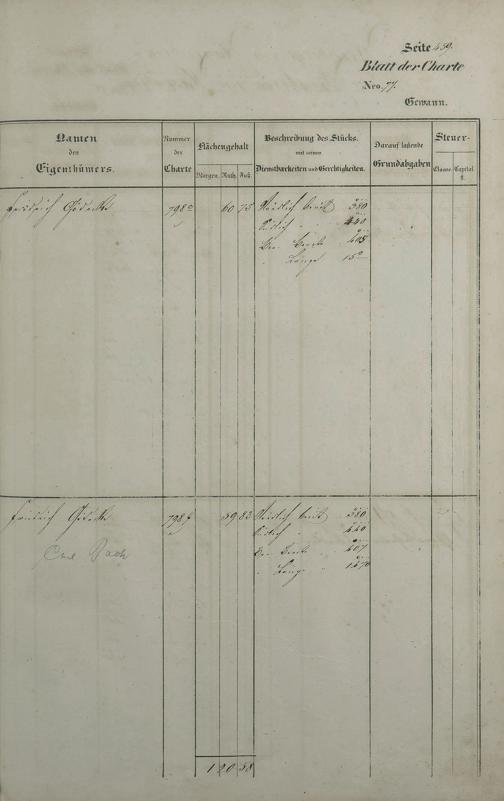 Seite 459.
Blatt der Charte
Nro. 77.
Gewann.
Namen
des
Eigenthümers.
Nummer
der
Charte
Flächengehalt
Morgen. Ruth. Fuß.
Beschreibung des Stücks.
mit seinen
Dienstbarkeiten und Gerechtigkeiten.
Darauf haftende
Grundabgaben
Steuer-
Classe. Capital.
fl.
Friedrich 798 60 75 Nördlich breit 380
Südlich 440
Breite 405
Länge 15
Friedrich 798 f 59 83 Nördlich breit 380
Südlich 440
Breite 407
Länge 1470
120 58